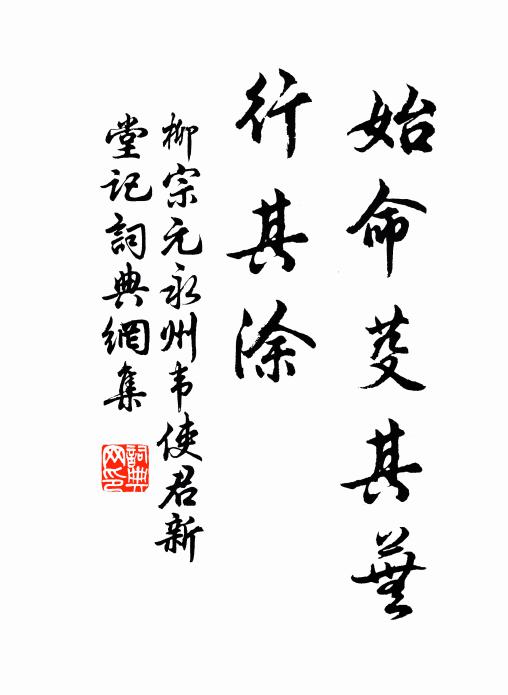 始命芟其蕪
行其涂
柳宗元永州韦使君新
堂记詞典網集
詞典网印